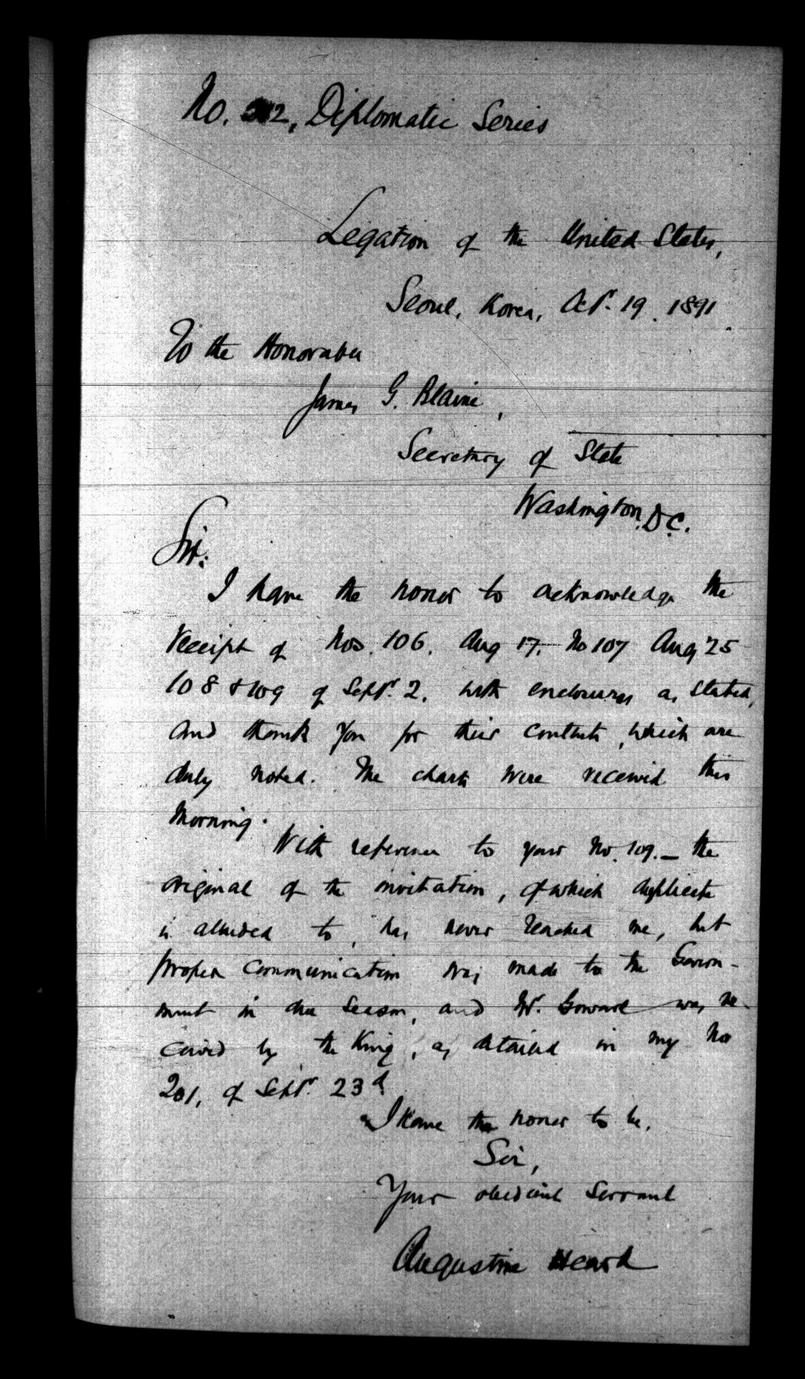 No. 212, Diplomatic Series
Legation of the United States,
Seoul, Korea, Oct. 19. 1891.
To the Honorable
James G. Blaine,
Secretary of State
Washington, D.C.
Sir:
I have the honor to acknowledge the
receipt of Nos. 106, Aug 17, No 107 Aug 25
108 & 109 of Sept. 2, with enclosures as stated,
and thank you for their contents, which are
duly noted. The charts were received this
morning.
With reference to your No. 109. — the
original of the invitation, of which duplicate
is alluded to, has never reached me, but
proper communication was made to the Govern-
ment in due season, and Mr. Goward was re-
ceived by the King, as detailed in my No
201, of Sept. 23d
I have the honor to be,
Sir,
Your obedient servant
Augustine Heard